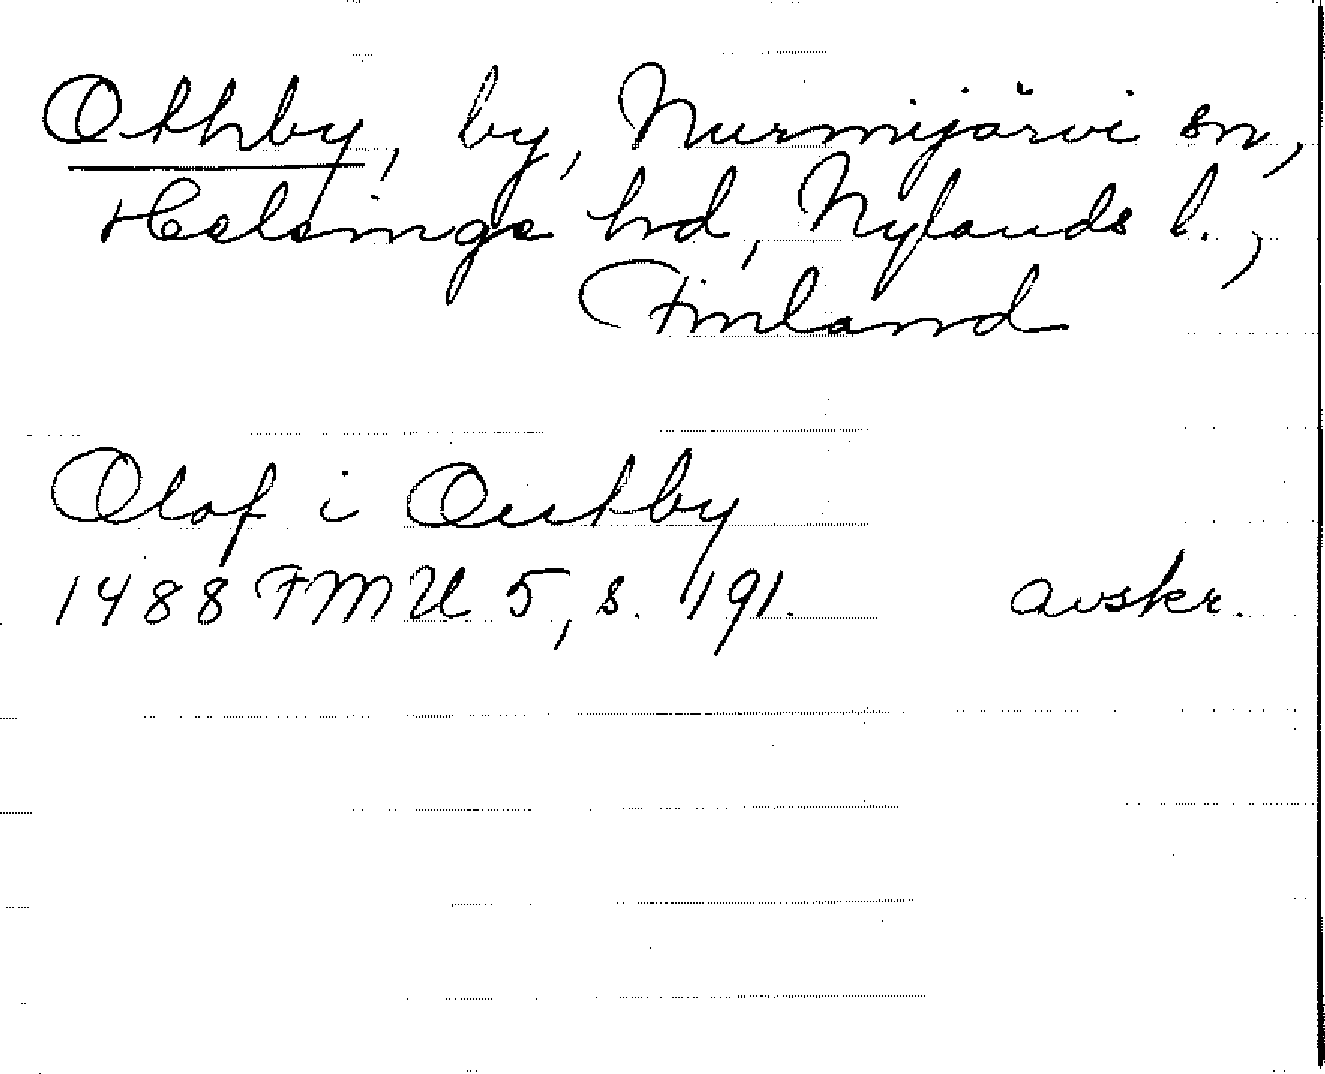 Othby, by, Nurmijärvi sn,
Helsinge hd, Nylands l.,
Finland
Olof i Outby
1488 FMU 5, s. 191. avskr.